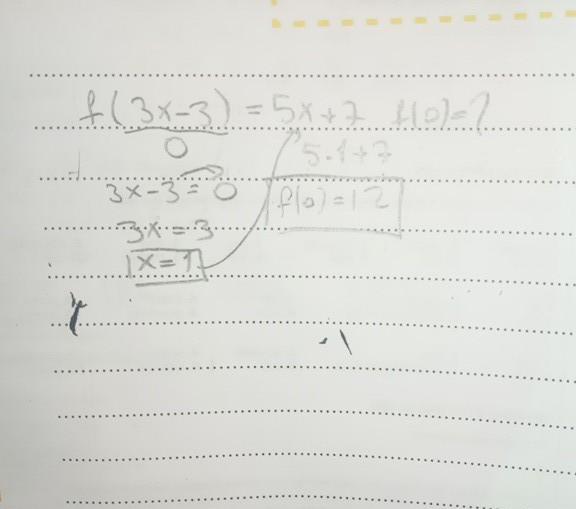 f(3x-3) = 5x+7 f(0)=?
0
5.1+7
3x-3=0
f(0)=12
3x=3
x=1